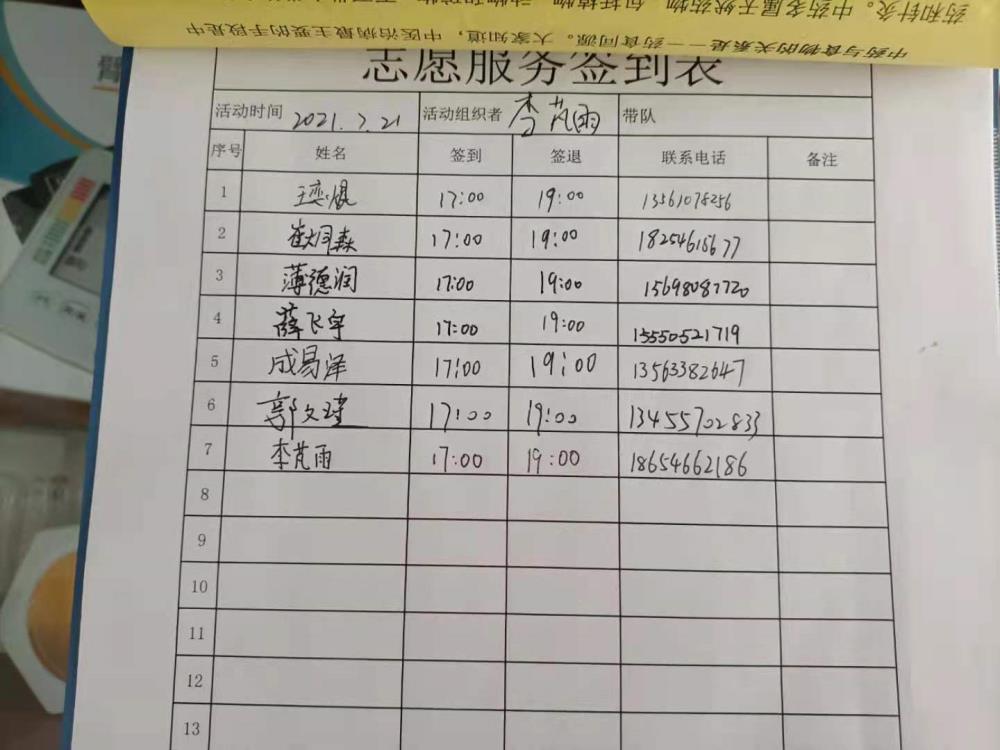 药和针灸。中药多属天然药物,包括植物、动物和矿物,
中药与食物的关系是——药食同源。大家知道,中医治病最主要的手段是中
志愿服务签到表
活动时间 2021.7.21 活动组织者 李芃雨 带队
序号 姓名 签到 签退 联系电话 备注
1 王奕焜 17:00 19:00 13561078256
2 17:00 19:00 18254615677
3 薄德润 17:00 19:00 15698087720
4 薛飞宇 17:00 19:00 13550521719
5 成易泽 17:00 19:00 13563382647
6 郭文瑾 17:00 19:00 13455702833
7 李芃雨 17:00 19:00 18654662186
8
9
10
11
12
13
臂